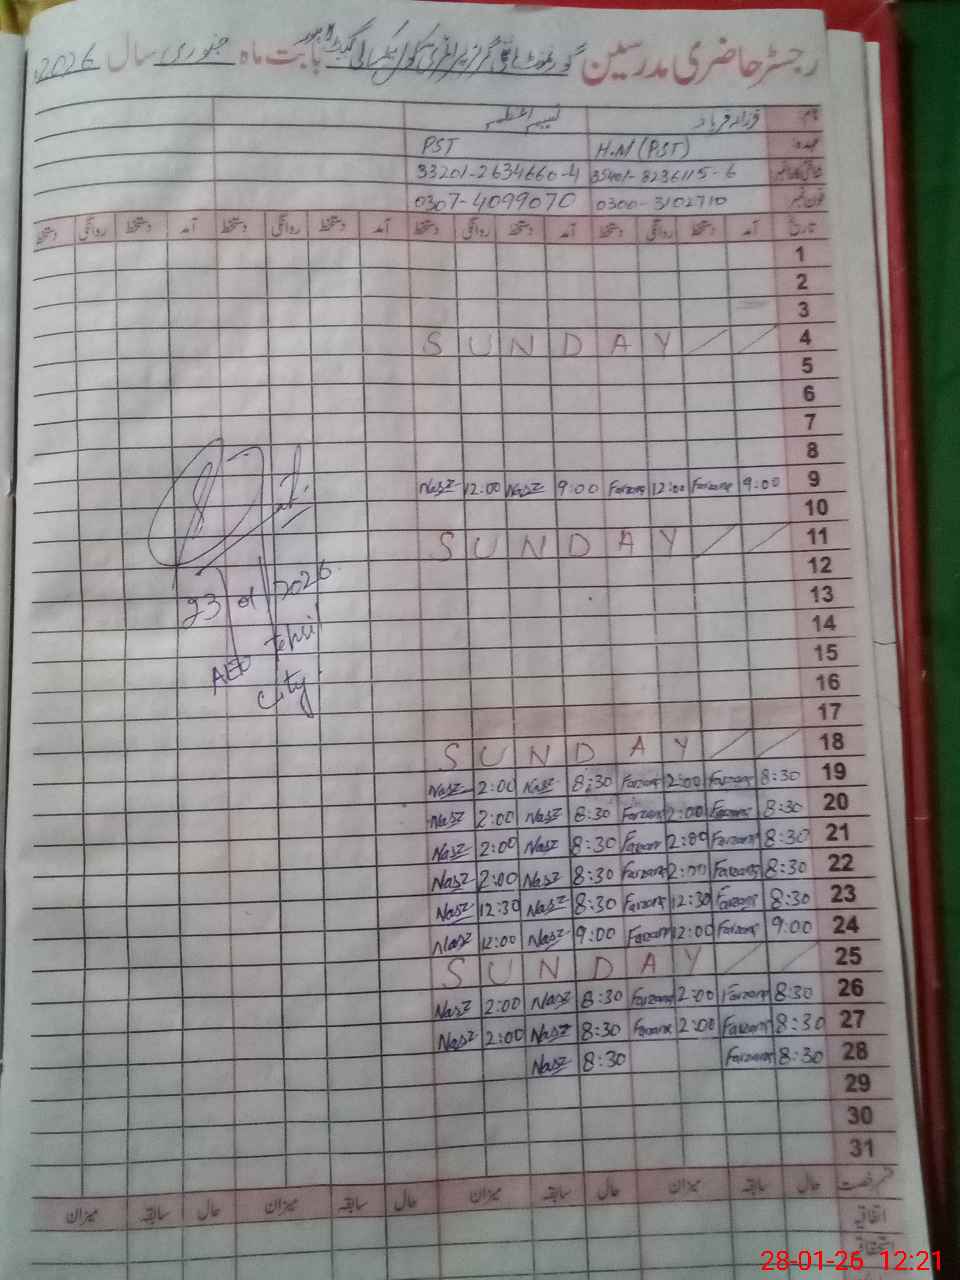 رجسٹر حاضری مدرسین گورنمنٹ گرلز پرائمری سکول ٹکسالی گیٹ لاہور بابت ماہ جنوری سال 2026
نام فرزانہ فرہاد
عہدہ H.M (PST) PST
35401-8236115-6 33201-2634660-4
فون نمبر 0300-3102710 0307-4099070
تاریخ آمد دستخط روانگی دستخط آمد دستخط روانگی دستخط آمد دستخط روانگی دستخط آمد دستخط روانگی دستخط
1
2
3
SUNDAY 4
5
6
7
8
Nasz 12:00 Nasz 9:00 Farzana 12:00 Farzana 9:00 9
10
SUNDAY 11
12
13
14
15
16
17
SUNDAY 18
Nasz 2:00 Nasz 8:30 Farzana 2:00 Farzana 8:30 19
Nasz 2:00 Nasz 8:30 Farzana 2:00 Farzana 8:30 20
Nasz 2:00 Nasz 8:30 Farzana 2:00 Farzana 8:30 21
Nasz 2:00 Nasz 8:30 Farzana 2:00 Farzana 8:30 22
Nasz 12:30 Nasz 8:30 Farzana 12:30 Farzana 8:30 23
Nasz 12:00 Nasz 9:00 Farzana 12:00 Farzana 9:00 24
SUNDAY 25
Nasz 2:00 Nasz 8:30 Farzana 2:00 Farzana 8:30 26
Nasz 2:00 Nasz 8:30 Farzana 2:00 Farzana 8:30 27
Nasz 8:30 Farzana 8:30 28
29
30
31
23/01/2026
AEO
City
رخصت حال سابقہ میزان حال سابقہ میزان حال سابقہ میزان حال سابقہ میزان
اتفاقیہ
استحقاقیہ
28-01-26 12:21